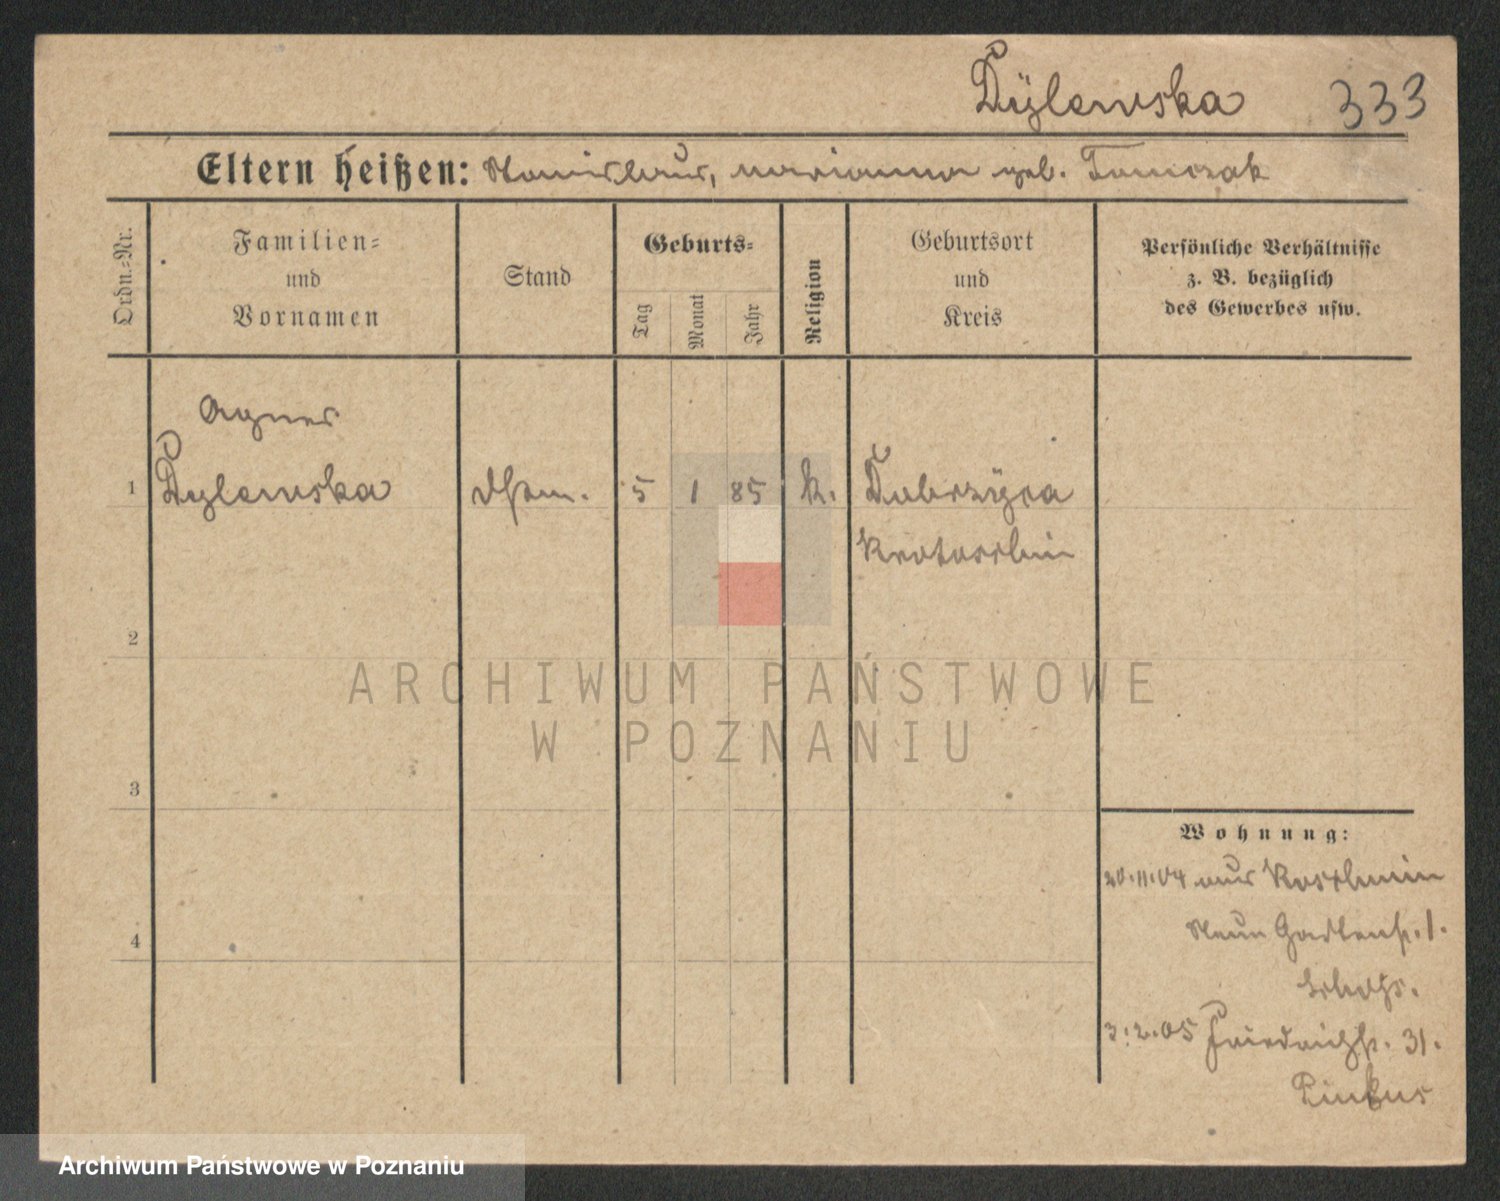 Dÿlewska 333
Eltern heißen: Stanislaus, Marianna geb. Tomczak
Ordn.-Nr.
Familien-
und
Vornamen
Stand
Geburts-
Tag
Monat
Jahr
Religion
Geburtsort
und
Kreis
Persönliche Verhältnisse
z. B. bezüglich
des Gewerbes usw.
Agnes
1 Dylewska 5 1 85 k. Dobrzÿca
Krotoschin
2
ARCHIWUM PAŃSTWOWE
W POZNANIU
3
Wohnung:
20.11.04 aus Koschmin
Neue Gartenst. 1.
4
3.2.05 Friedrichst. 31.
Pinkus
Archiwum Państwowe w Poznaniu